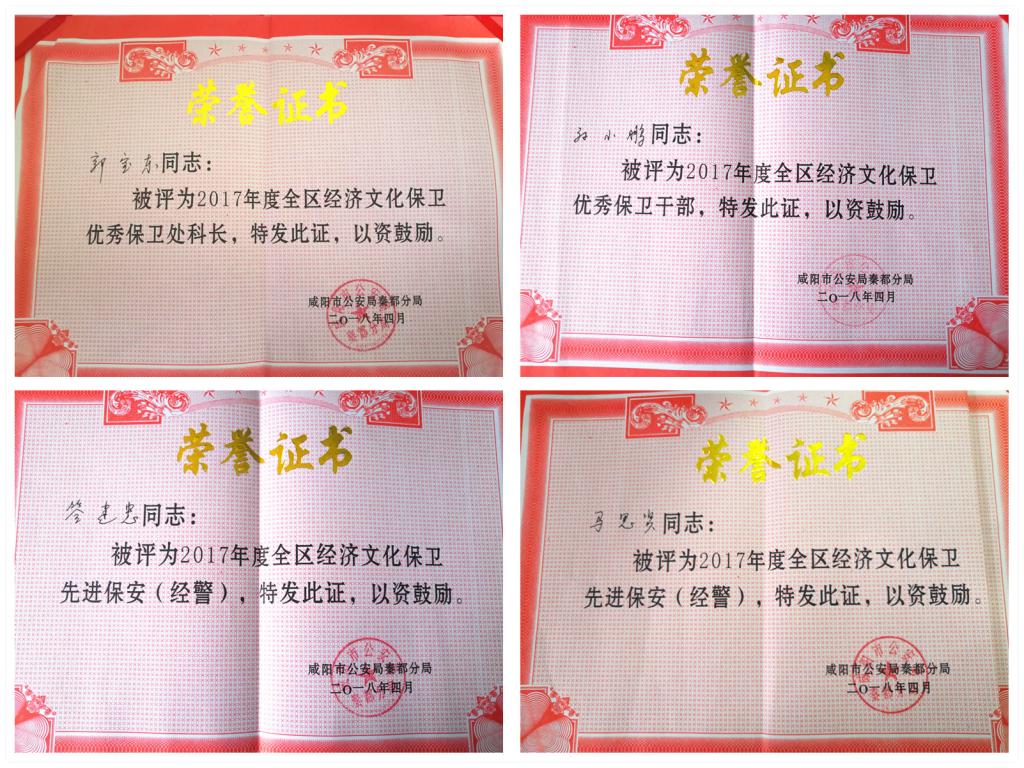 荣誉证书
郭宝东同志：
被评为2017年度全区经济文化保卫
优秀保卫处科长，特发此证，以资鼓励。
咸阳市公安局秦都分局
二〇一八年四月
荣誉证书
小鹏同志：
被评为2017年度全区经济文化保卫
优秀保卫干部，特发此证，以资鼓励。
咸阳市公安局秦都分局
二〇一八年四月
荣誉证书
建忠同志：
被评为2017年度全区经济文化保卫
先进保安（经警），特发此证，以资鼓励。
咸阳市公安局秦都分局
二〇一八年四月
荣誉证书
马思贤同志：
被评为2017年度全区经济文化保卫
先进保安（经警），特发此证，以资鼓励。
咸阳市公安局秦都分局
二〇一八年四月